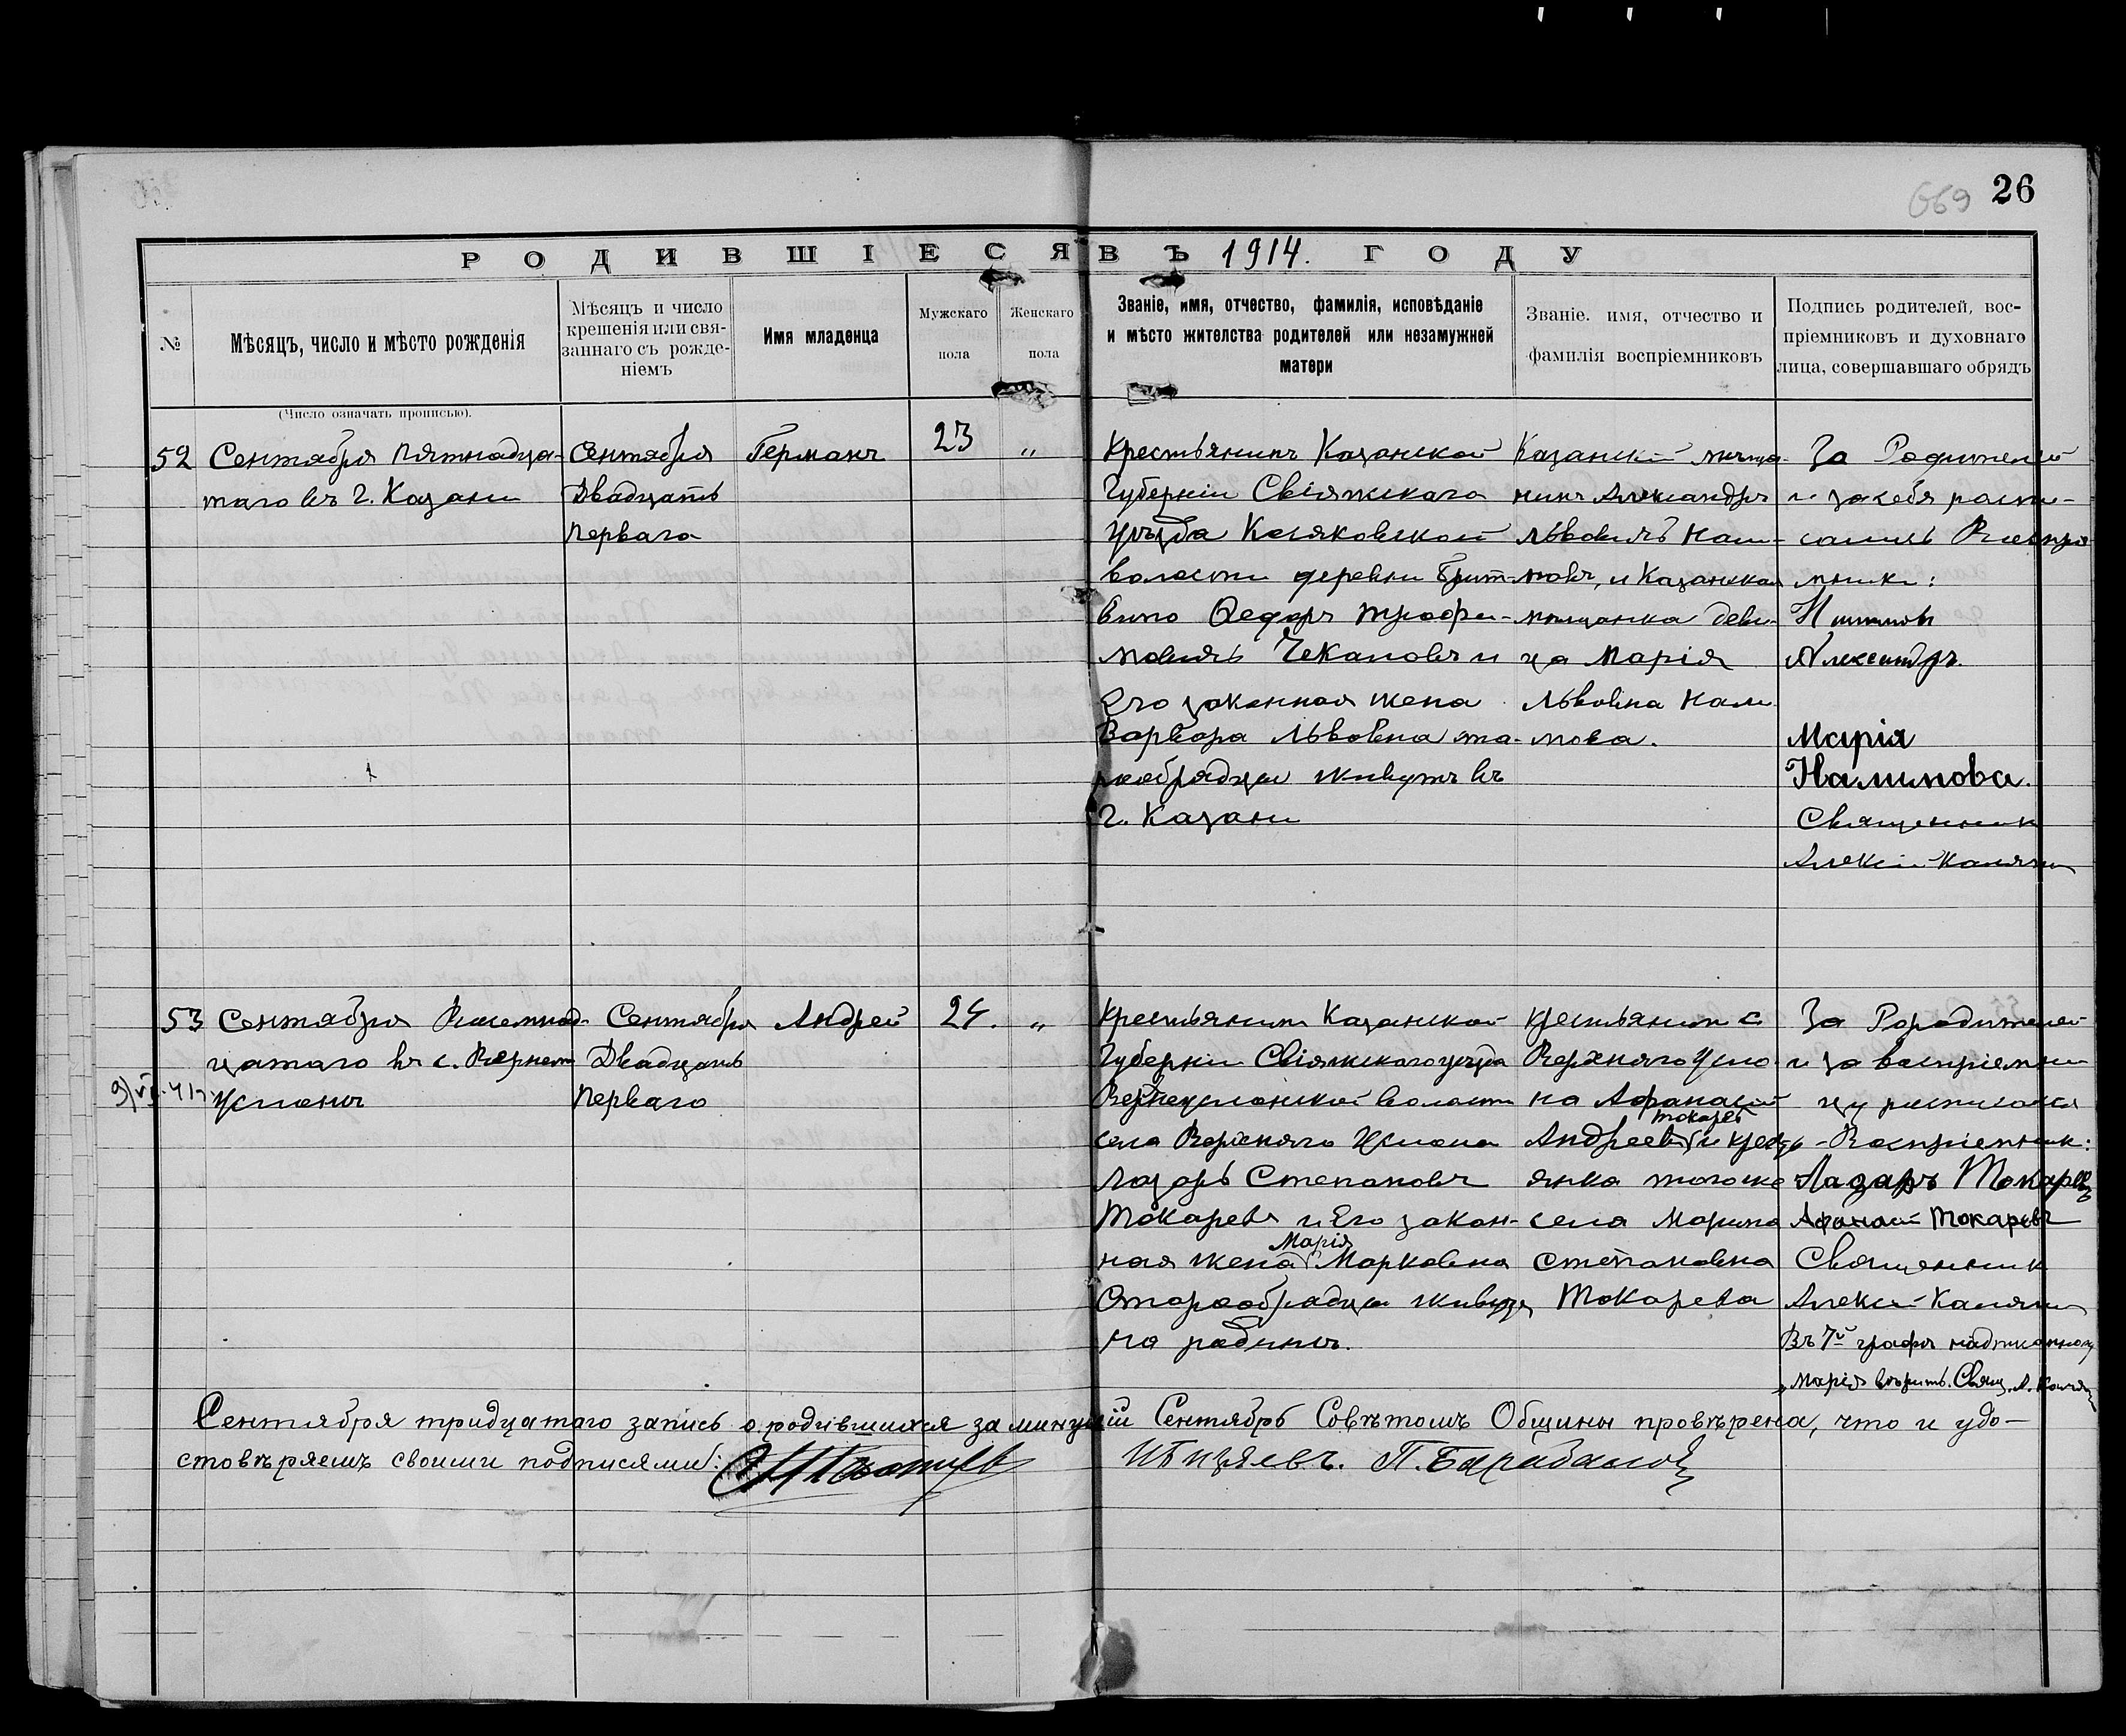 669 26
РОДИВШІЕСЯ ВЪ 1914. ГОДУ
№
Мѣсяцъ, число и мѣсто рожденія
(Число означать прописью).
Мѣсяцъ и число
крещенія или свя-
заннаго съ рожде-
ніемъ
Имя младенца
Мужскаго
пола
Женскаго
пола
Званіе, имя, отчество, фамилія, исповѣданіе
и мѣсто жителства родителей или незамужней
матери
Званіе. имя, отчество и
фамилія воспріемниковъ
Подпись родителей, вос-
пріемниковъ и духовнаго
лица, совершавшаго обрядъ
52
Сентября пятнадца-
таго въ г. Казани
Сентября
Двадцать
перваго
Германъ
23
„
Крестьянинъ Казанской
Губерніи Свіяжскаго
уѣзда Косяковской
волости деревни
Федоръ Трофи-
мовичъ Чекановъ и
Его законная жена
Варвара Львовна ста-
рообрядцы живутъ въ
г. Казани
Казанскій мѣща-
нинъ Александръ
Львовичъ Нали-
мовъ, и Казанская
мѣщанка деви-
ца Марія
Львовна Нали
мова.
За Родителей
и за себя распи-
сались Воспріе
мники:
Александръ.
Марія
Налимова.
Священникъ
Алексій Калягин
53
Сентября Восемнад-
цатаго въ с. Верхнемъ
Услонѣ
Сентября
Двадцать
перваго
Андрей
24.
„
Крестьянинъ Казанской
Губерніи Свіяжскаго уѣзда
Верхнеуслонской волости
села Верхняго Услона
Лазарь Степановъ
Токаревъ и Его закон-
Марія
ная жена Марковна
Старообрядцы живутъ
на родинѣ.
крестьянинъ с
Верхняго Усло-
на Афанасій
Токаревъ
Андреевъ и кресть-
янка тогоже
села Марина
Степановна
Токарева
За Рородителей
и за воспріемни
цу росписался
Воспріемник:
Лазарь Токаревъ
Афанасій Токаревъ
Священникъ
Алексій Калягин
Въ 7й графѣ надписанному
„Марія вѣрить. Свящ. А. Калягин
Сентября тридцатаго запись о родившихся за минувшій Сентябрь Совѣтомъ Общины провѣрена, что и удо-
стовѣряемъ своими подписями: П. Барабановъ